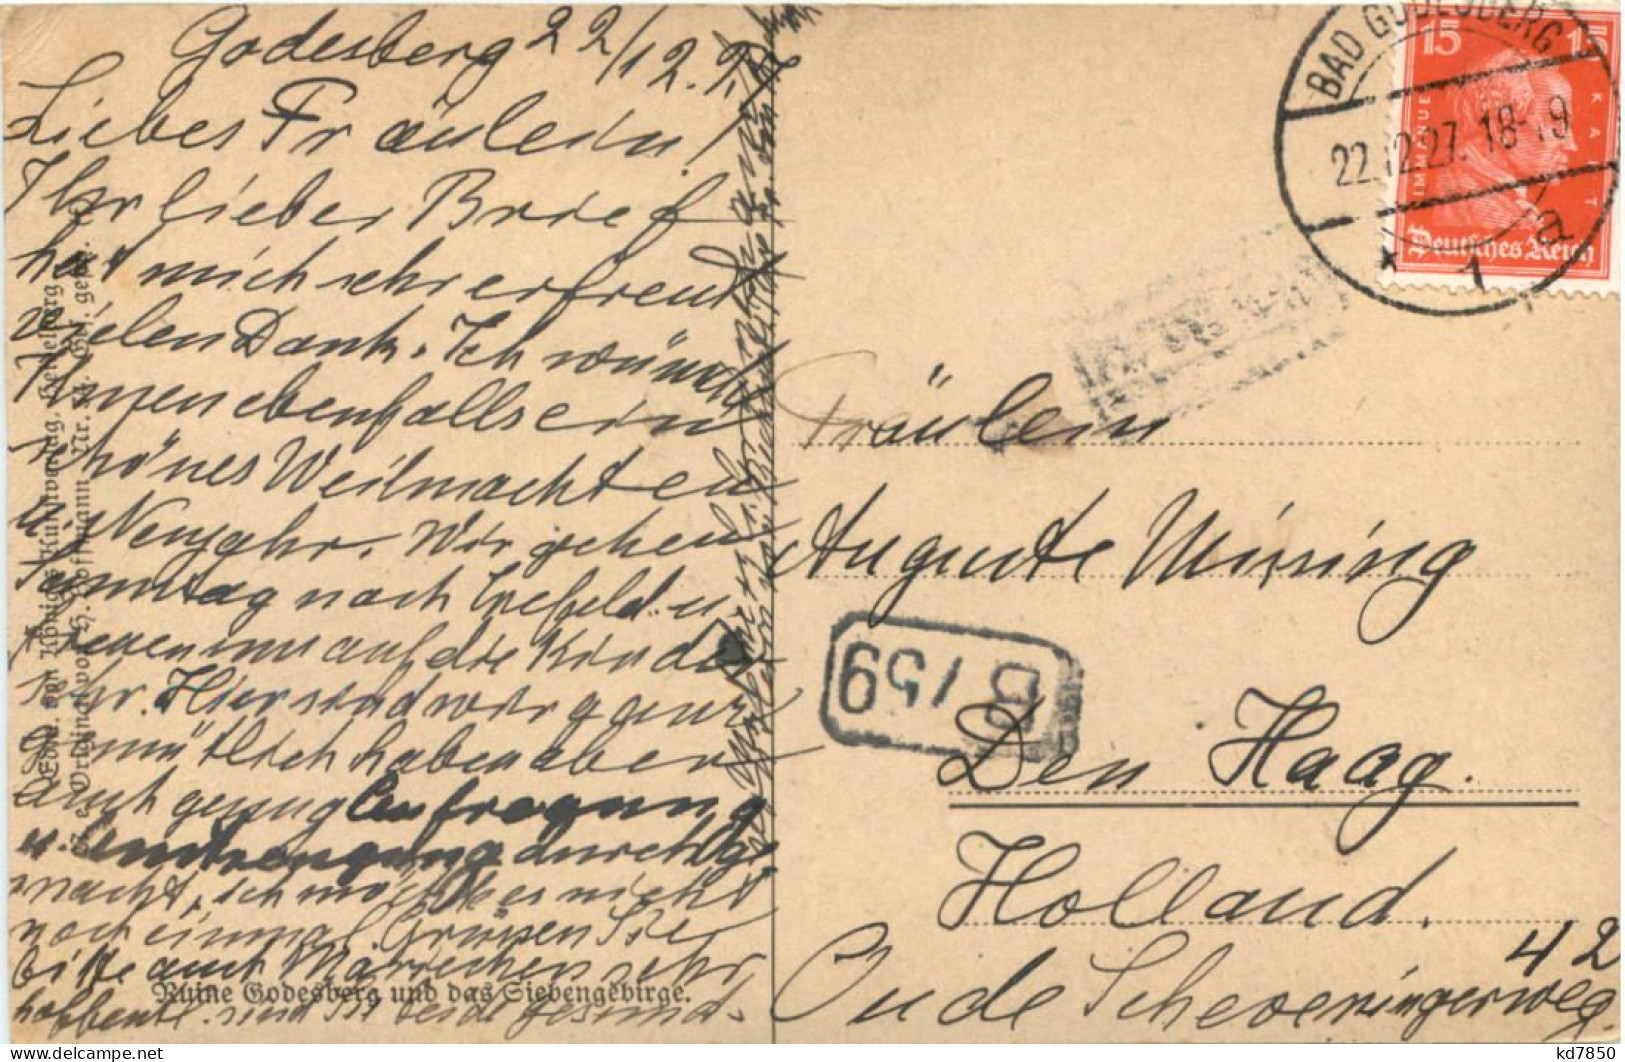 Godesberg 22/12.27
Liebes Fräulein!
Ihr lieber Brief
hat mich sehr erfreut
vielen Dank. Ich wünsche
Ihnen ebenfalls ein
schönes Weihnachten
u. Neujahr. Wir gehen
Samstag nach Crefeld u.
freuen uns auf die Kinder
sehr. Hier sind wir ganz
gemütlich haben aber
auch genug Aufregung
u. Anstrengung durchge
macht, ich möchte es nicht
noch einmal. Grüssen Sie
bitte auch Mariechen sehr
hoffentl. sind Sie beide gesund.
Edm. von König, Kunstverlag, Heidelberg
Ruine Godesberg und das Siebengebirge.
BAD GODESBERG
22.12.27. 18-19
* 1 a
15 15
IMMANUEL KANT
Deutsches Reich
Fräulein
Auguste
B 159
Den Haag.
Holland.
42
Oude Scheveningerweg
kd7850